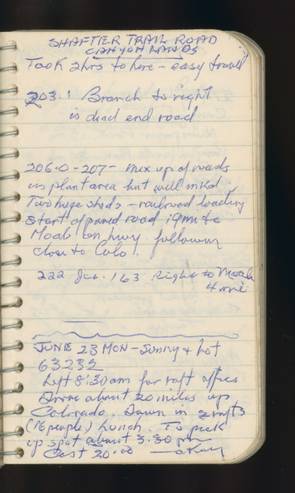 SHAFTER TRAIL ROAD
CANYON LANDS
Took 2 hrs to here - easy travel
203.1 Branch to right
is dead end road
206.0 - 207 - mix up of roads
in plant area but well mkd
Two huge sheds - railroad loading
Start of paved road 19 mi to
Moab on hwy following
close to Colo.
222 Jct. 163 Right to Moab
4 mi
JUNE 23 MON - Sunny & hot
63232
Left 8:30 am for raft office
Drove about 20 miles up
Colorado. Down in 2 rafts
(16 people) Lunch. To pick
up spot about 3:30 pm
Cost 20.00